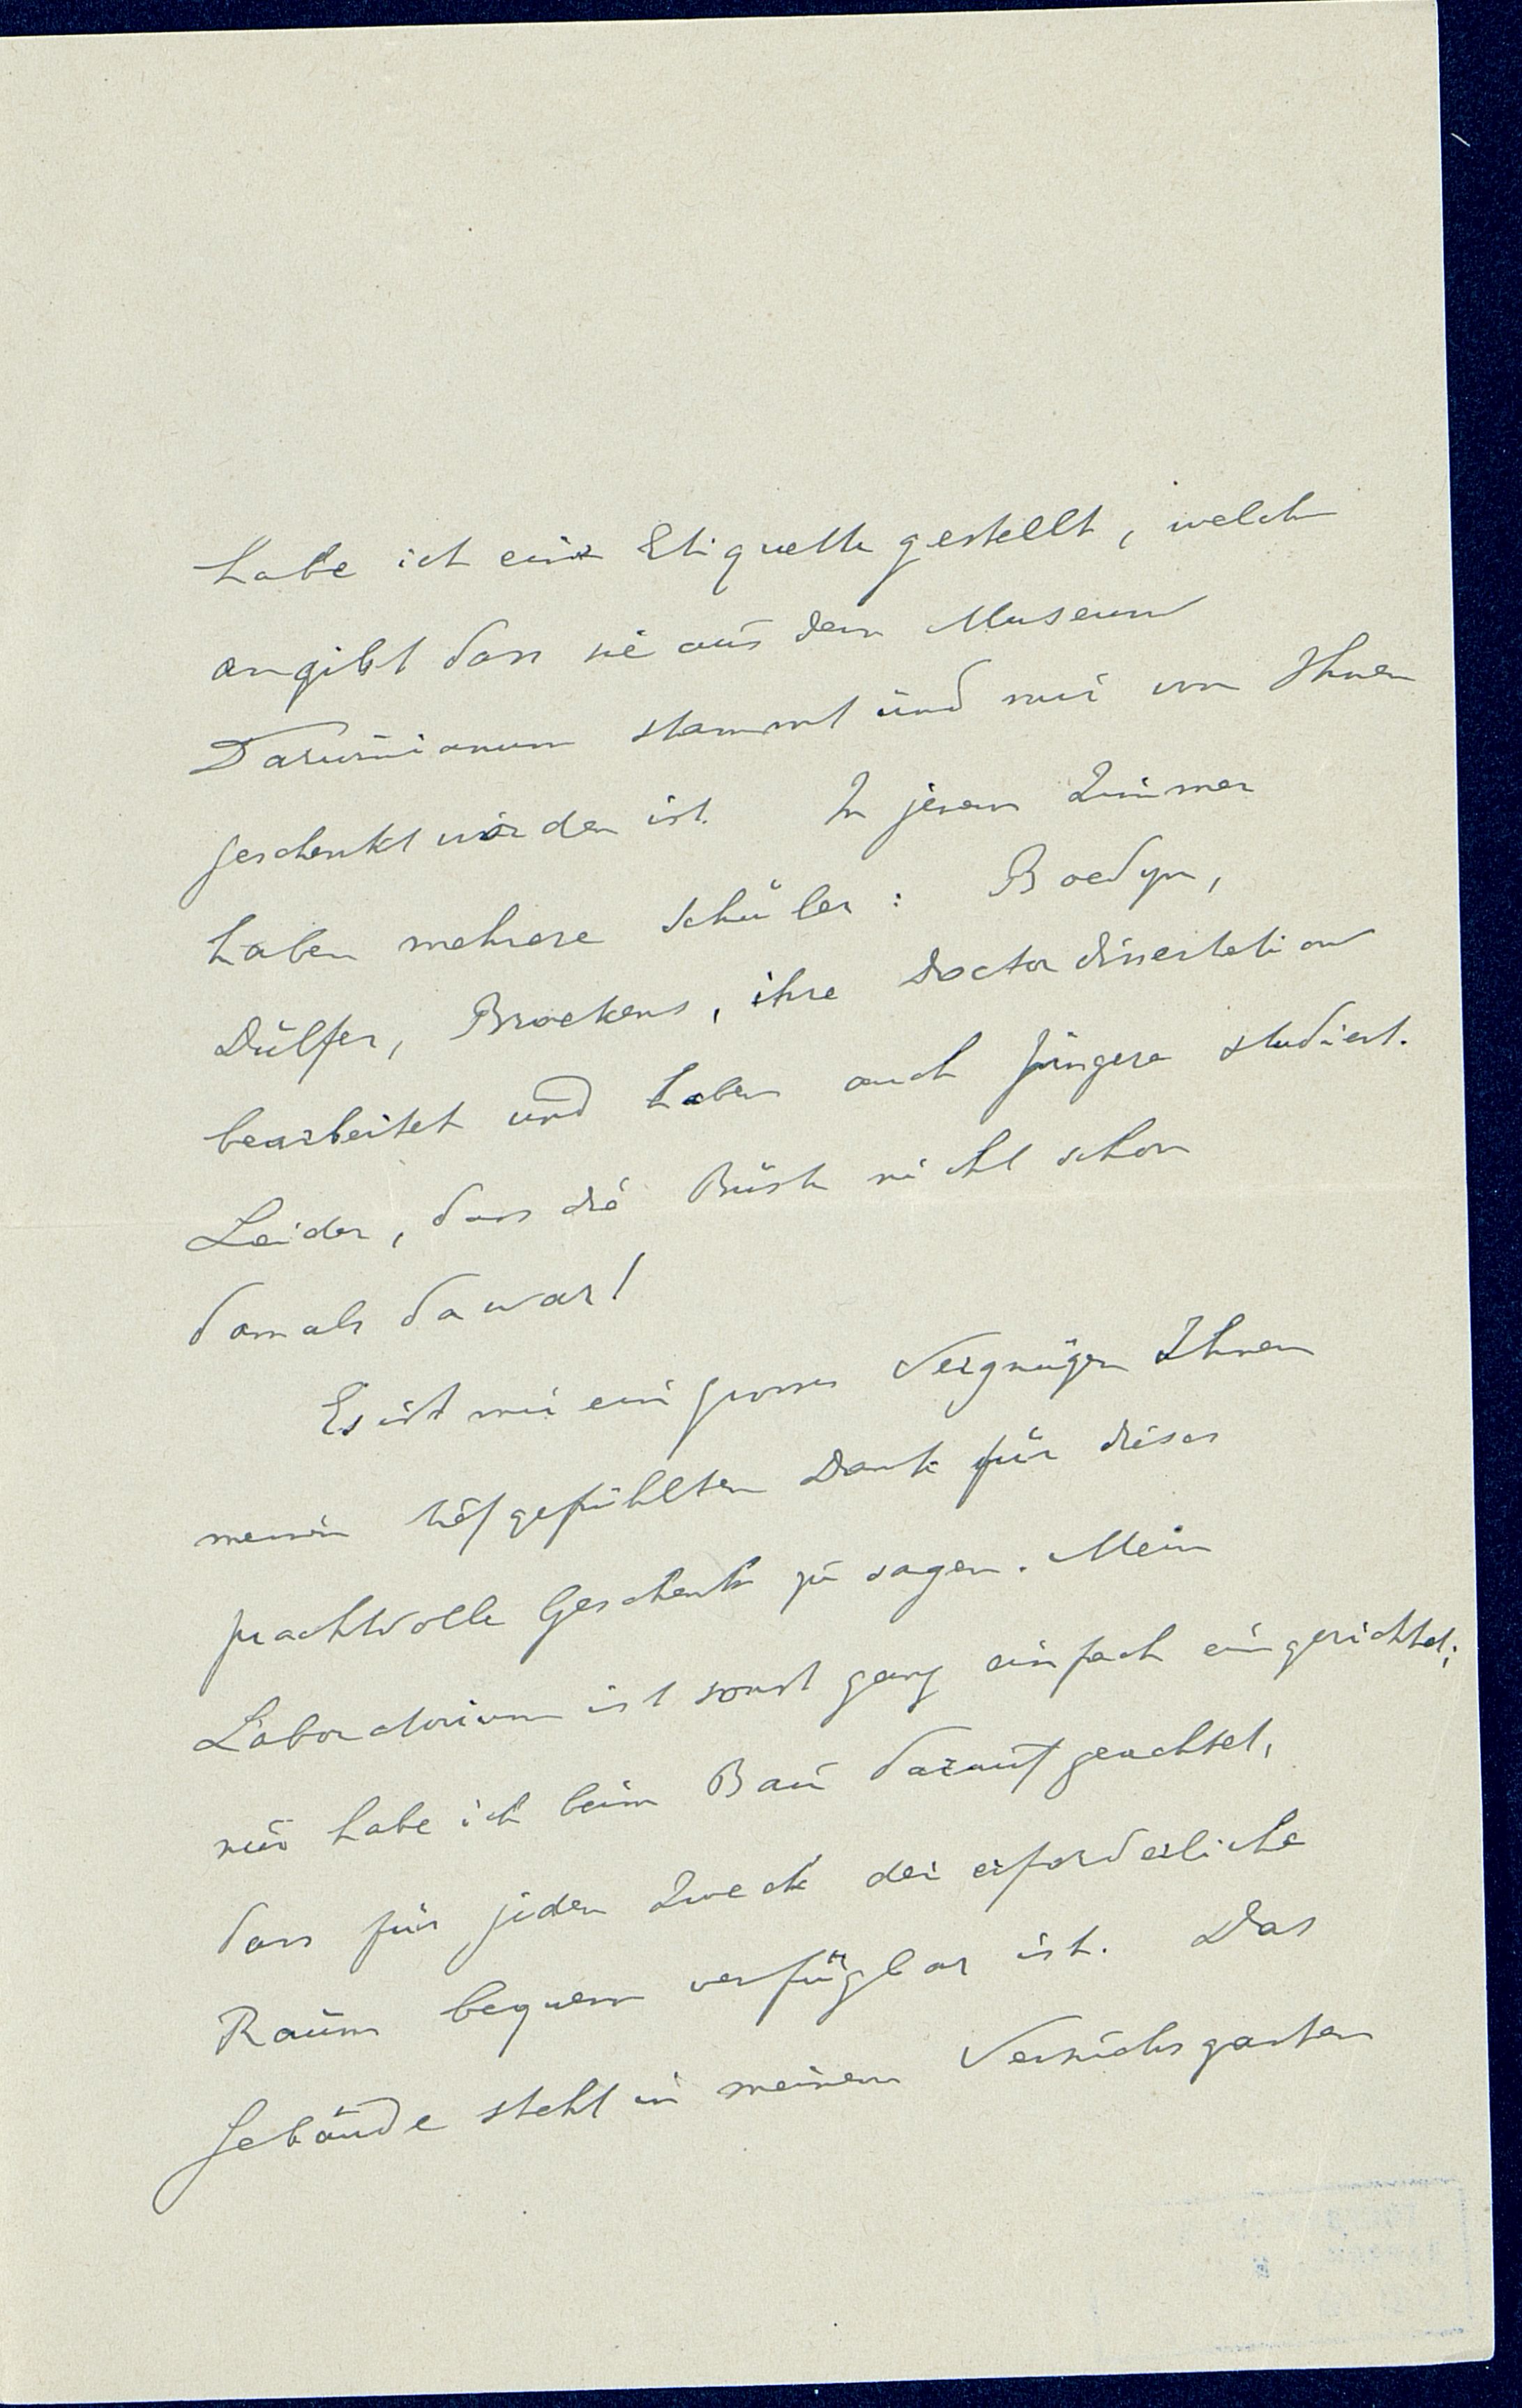 habe ich eine Etiquette gestellt, welche
angibt dass sie aus dem Museum
Darwinianum stammt und mir von Ihnen
geschenkt worden ist. In jenem Zimmer
haben mehrere Schüler: Boedijn,
Dulfer, Broekens, ihre Doctordissertation
bearbeitet und haben auch jüngere studiert.
Leider, dass die Büste nicht schon
damals da war!
Es ist mir ein grosses Vergnügen Ihnen
meinen tiefgefühlten Dank für dieses
prachtvolle Geschenk zu sagen. Mein
Laboratorium ist sonst ganz einfach eingerichtet;
nur habe ich beim Bau darauf geachtet,
dass für jeden Zweck der erforderliche
Raum bequem verfügbar ist. Das
Gebäude steht in meinem Versuchsgarten